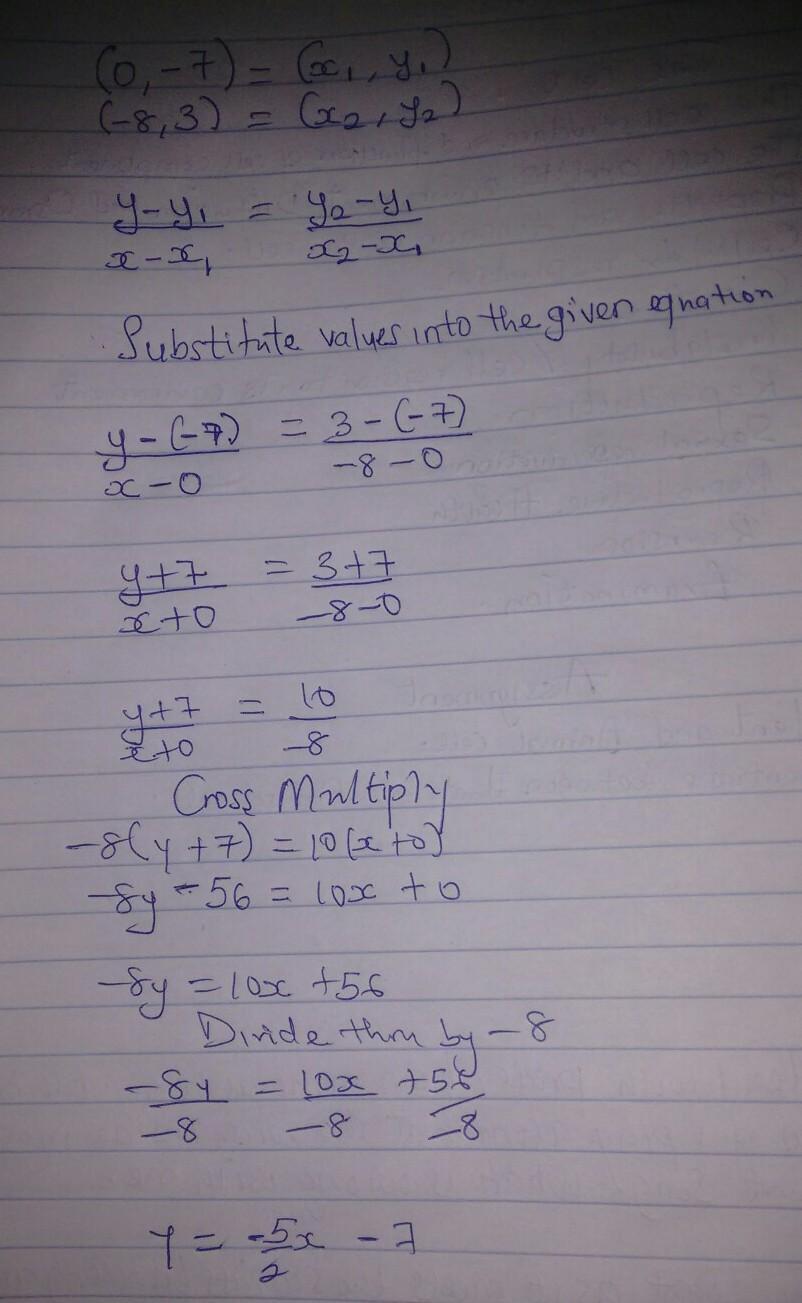 (0, -7) = (x₁, y₁)
(-8, 3) = (x₂, y₂)
y-y₁/x-x₁ = y₂-y₁/x₂-x₁
Substitute values into the given equation
y-(-7)/x-0 = 3-(-7)/-8-0
y+7/x+0 = 3+7/-8-0
y+7/x+0 = 10/-8
Cross Multiply
-8(y+7) = 10(x+0)
-8y - 56 = 10x + 0
-8y = 10x + 56
Divide thru by -8
-8y/-8 = 10x/-8 + 56/-8
y = -5x/2 - 7